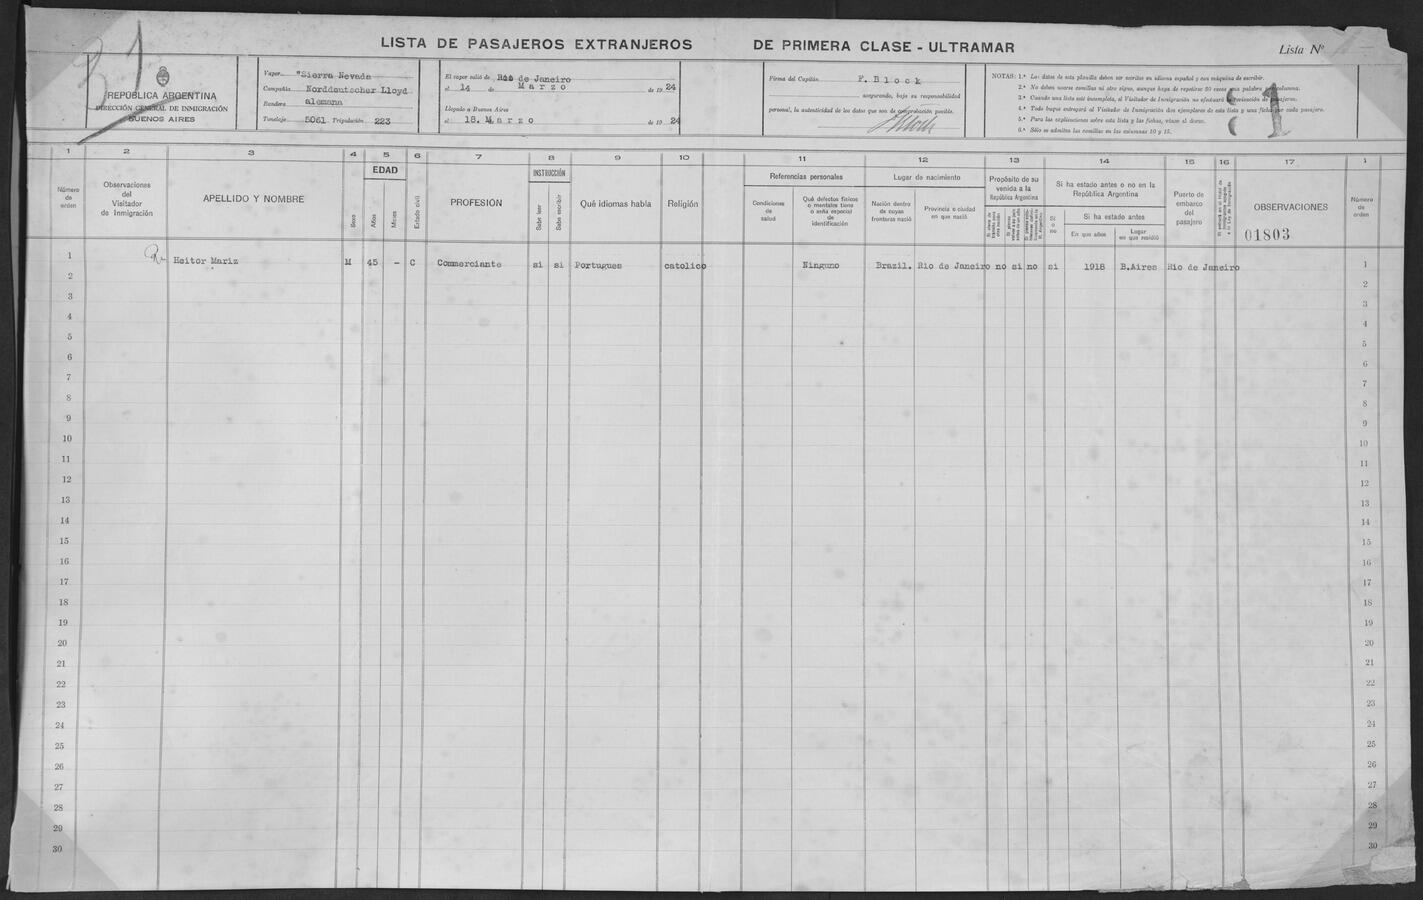 LISTA DE PASAJEROS EXTRANJEROS DE PRIMERA CLASE - ULTRAMAR
Lista Nº
REPÚBLICA ARGENTINA
DIRECCIÓN GENERAL DE INMIGRACIÓN
BUENOS AIRES
Vapor "Sierra Nevada
Compañía Norddeutscher Lloyd
Bandera alemana
Tonelaje 5061 Tripulación 223
El vapor salió de Rio de Janeiro
el 14 de Marzo de 1924
Llegado a Buenos Aires
el 18. Marzo de 1924
Firma del Capitán F. Block
asegurando, bajo su responsabilidad
personal, la autenticidad de los datos que son de comprobación posible.
NOTAS: 1.ª Los datos de esta planilla deben ser escritos en idioma español y con máquina de escribir.
2.ª No deben usarse comillas ni otro signo, aunque haya de repetirse 50 veces una palabra columna.
3.ª Cuando una lista esté incompleta, el Visitador de Inmigración no efectuará pasajeros.
4.ª Todo buque entregará al Visitador de Inmigración dos ejemplares de esta lista y una ficha por cada pasajero.
5.ª Para las explicaciones sobre esta lista y las fichas, véase al dorso.
6.ª Sólo se admiten las comillas en las columnas 10 y 15.
1 2 3 4 5 6 7 8 9 10 11 12 13 14 15 16 17 1
Número de orden
Observaciones del Visitador de Inmigración
APELLIDO Y NOMBRE
Sexo
EDAD
Años
Meses
Estado civil
PROFESIÓN
INSTRUCCIÓN
Sabe leer
Sabe escribir
Qué idiomas habla
Religión
Referencias personales
Condiciones de salud
Qué defectos físicos o mentales tiene o seña especial de identificación
Lugar de nacimiento
Nación dentro de cuyas fronteras nació
Provincia o ciudad en que nació
Propósito de su venida a la República Argentina
Si ha estado antes o no en la República Argentina
SI o no
Si ha estado antes
En que años
Lugar en que residió
Puerto de embarco del pasajero
OBSERVACIONES
01803
Número de orden
1 Heitor Mariz M 45 - C Commerciante si si Portugues catolico Ninguno Brazil. Rio de Janeiro no si no si 1918 B.Aires Rio de Janeiro 1
2 2
3 3
4 4
5 5
6 6
7 7
8 8
9 9
10 10
11 11
12 12
13 13
14 14
15 15
16 16
17 17
18 18
19 19
20 20
21 21
22 22
23 23
24 24
25 25
26 26
27 27
28 28
29 29
30 30